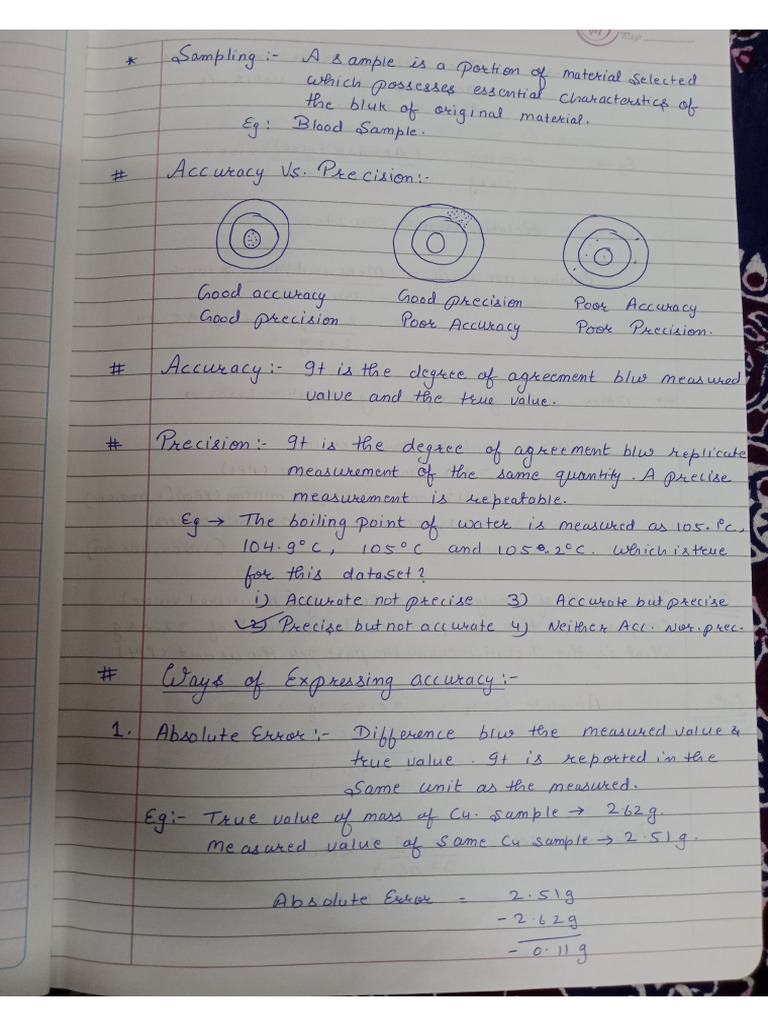 * Sampling :- A sample is a portion of material selected
which possesses essential characterstics of
the bluk of original material.
Eg: Blood Sample.
# Accuracy Vs. Precision:-
Good accuracy Good precision Poor Accuracy
Good precision Poor Accuracy Poor Precision.
# Accuracy :- It is the degree of agreement b/w measured
value and the true value.
# Precision:- It is the degree of agreement b/w replicate
measurement of the same quantity. A precise
measurement is repeatable.
Eg → The boiling point of water is measured as 105.1°C,
104.9°C, 105°C and 105.2°C. which is true
for this dataset?
i) Accurate not precise 3) Accurate but precise
2) Precise but not accurate 4) Neither Acc. Nor. prec.
# Ways of Expressing accuracy:-
1. Absolute Error:- Difference b/w the measured value &
true value. It is reported in the
same unit as the measured.
Eg:- True value of mass of Cu. sample → 2.62g.
measured value of same Cu sample → 2.51g.
Absolute Error = 2.51g
- 2.62g
- 0.11g